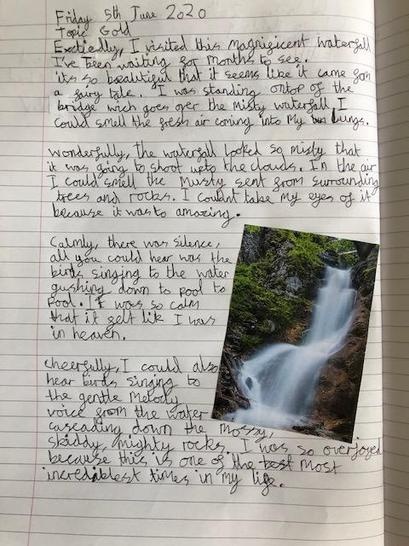 Friday 5th June 2020
Topic Gold
Excitedly, I visited this magnificent waterfall
I've been waiting for months to see.
it's so beautiful that it seems like it came from
a fairy tale. I was standing ontop of the
bridge wich goes over the misty waterfall I
could smell the fresh air coming into my lungs.
Wonderfully, the waterfall looked so misty that
it was going to shoot upto the clouds. In the air
I could smell the Musty sent from surrounding
trees and rocks. I couldnt take my eyes of it
because it was to amazing.
Calmly, there was silence,
all you could hear was the
birds singing to the water
gushing down to pool to
pool. It was so calm
that it felt like I was
in heaven.
Cheerfully, I could also
hear birds singing to
the gentle Melody
voice from the water
cascading down the mossy,
skiddy, mighty rocks. I was so overjoyed
because this is one of the best most
incrediblest times in my life.